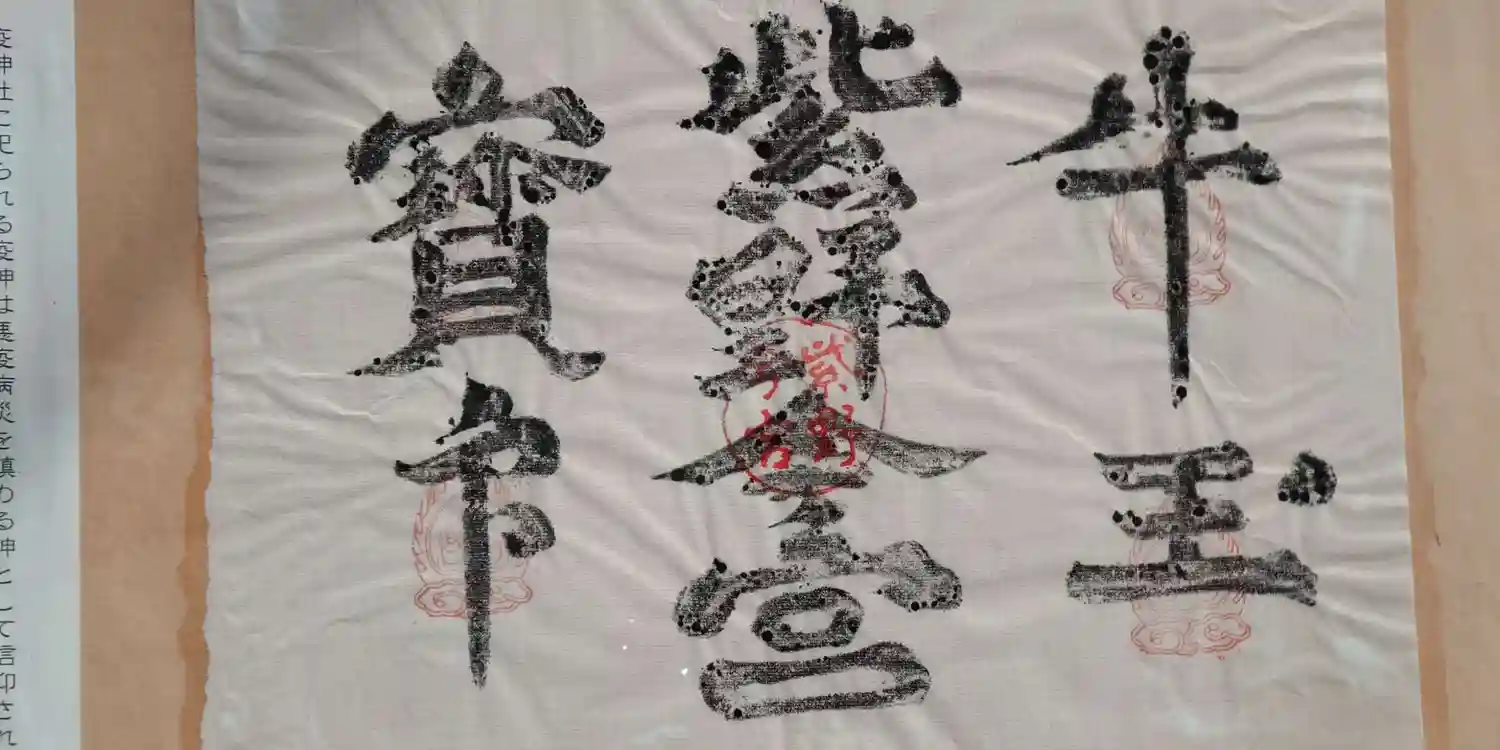 牛玉
紫野今宮
紫野
今宮
寶印
疫神社に祀られる疫神は悪疫病災を鎮める神として信仰され